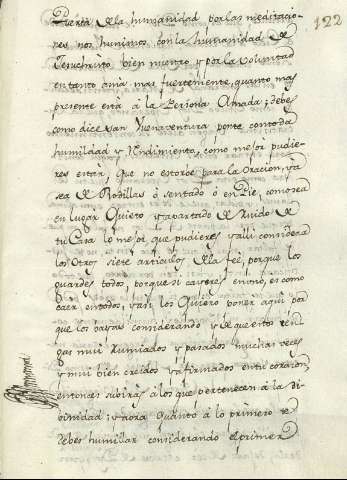 122
Puerta de la humanidad por las meditacio-
nes nos hunimos con la humanidad de
Jesuchristo bien nuestro y por la Voluntad
en tanto ama mas fuertemente, quanto mas
presente está á la Persona Amada; debes
como dice san Buenaventura ponte con toda
humildad y Rendimiento, como mejor pudie-
res estar, que no estorbe para la oracion, ya
sea de Rodillas ô sentado ô en Pie, como sea
en lugar Quieto y apartado de Ruido de
tu Casa lo mejor que pudieres y alli considera
los Otros siete articulos de la feè, porque los
guardes todos, porque si cayeres en uno, es como
caer en todos, y asi los Quiero poner aqui por
que los vayas considerando y de que estos ten-
gas mui Rumiados y pasados muchas veces
y mui bien creidos y afirmados en tu corazon,
entonces subirás á los que pertenecen á la Di-
binidad; y aora Quanto á lo primero te
debes humillar considerando el primer